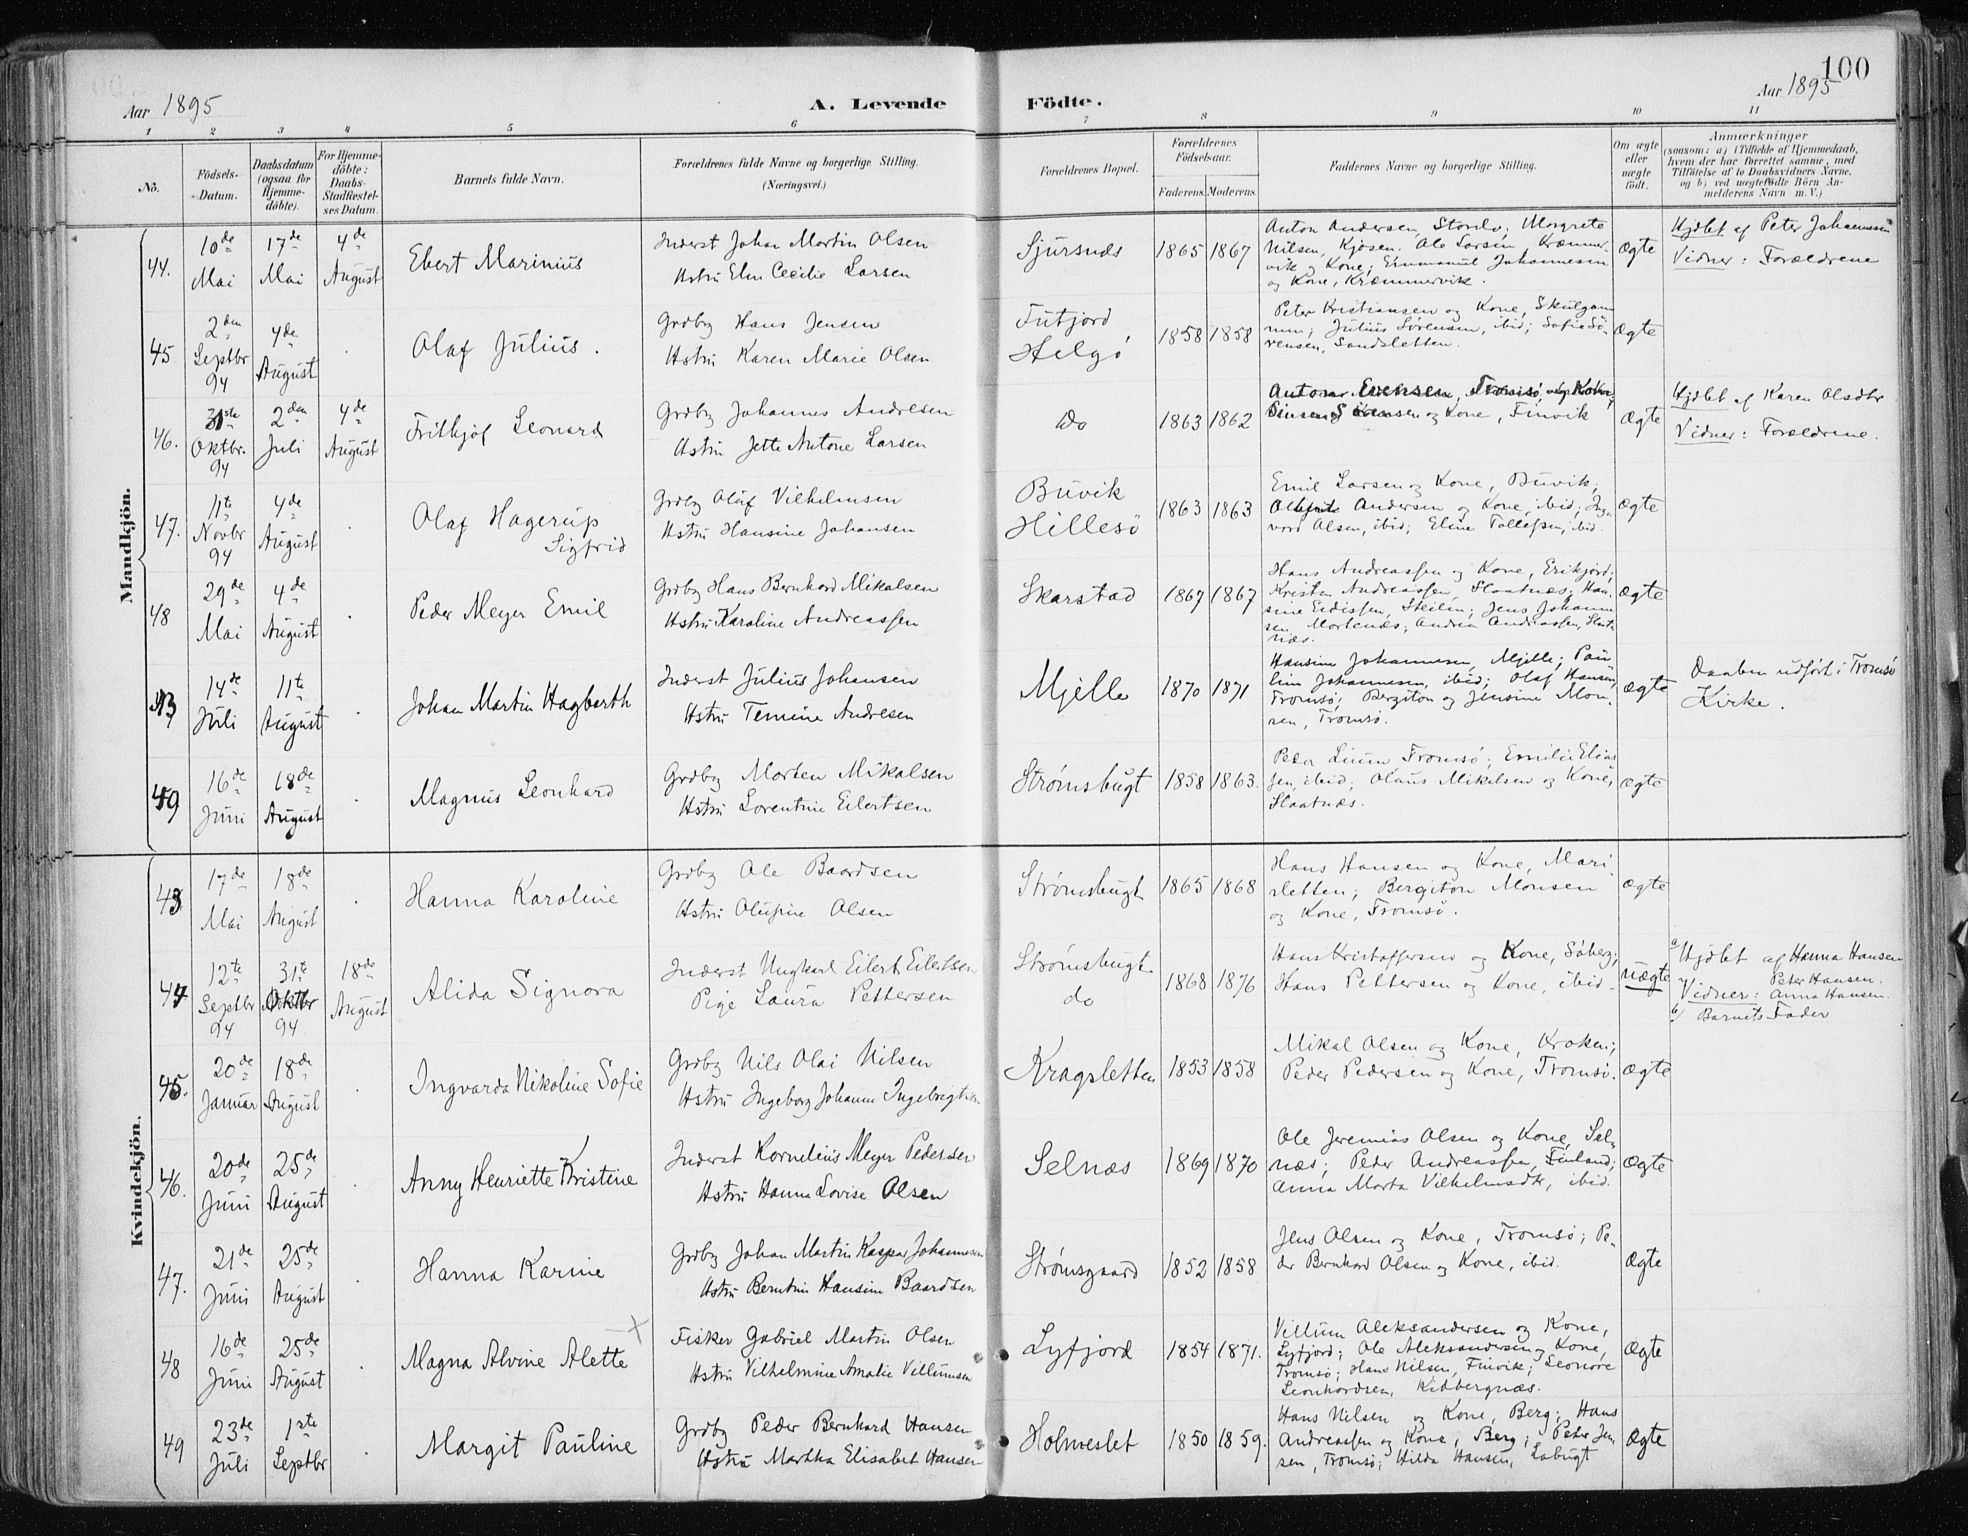 100
Aar 1895
A. Levende
Födte.
Aar 1895
1 2 3 4 5 6 7 8 9 10 11
No.
Födsels-Datum.
Daabsdatum (ogsaa for Hjemmedöbte).
For Hjemmedöbte: Daabs-Stadfæstelses Datum.
Barnets fulde Navn.
Forældrenes fulde Navne og borgerlige Stilling. (Næringsvei.)
Forældrenes Bopæl.
Forældrenes Födselsaar.
Faderens. Moderens.
Faddernes Navne og borgerlige Stilling.
Om ægte eller uægte födt.
Anmærkninger
(saasom: a) i Tilfælde af Hjemmedaab, hvem der har forrettet samme, med Tilföielse af to Daabsvidners Navne, og b) ved uægtefödte Börn Anmelderens Navn m. V.)
Mandkjön.
44. 10de Mai 17de Mai 4de August
Ebert Marinius
Inderst Johan Martin Olsen
Hstru Elen Cecilie Larsen
Sjursnes 1865 1867
Anton Andersen, Stordö; Margrete
Nilsen, Kjosen. Ole Larsen, Kræmmer-
vik og Kone; Emmanuel Johannesen
og Kone, Kræmmervik.
Ægte
Hjdbt af Peter Johannessen
Vidner: Forældrene
45 2den Septbr 94 4de August
Olaf Julius.
Grdbg Hans Jensen
Hstru Karen Marie Olsen
Futfjord
Helgö
1858 1858
Peter Kristiansen og Kone, Skulgam-
men; Julius Sörensen, ibid; Sofie Sö-
rensen, Sandsletten.
Ægte
46. 31ste Oktbr. 94 2den Juli 4de August
Frithjof Leonard
Grdbg Johannes Andresen
Hstru Jette Antone Larsen
Do 1863 1862
og Kone, Finvik
Ægte
Hjdbt af Karen Olsdtr
Vidner: Forældrene.
47. 11te Novbr 94 4de August
Olaf Hagerup
Sigfrid
Grdbg Oluf Vilhelmsen
Hstru Hansine Johansen
Buvik
Hillesö
1863 1863
Emil Larsen og Kone, Buvik;
Andersen og Kone, ibid; Ing-
vard Olsen, ibid; Eline Tollefsen, ibid.
Ægte
48 29de Mai 4de August
Peder Meyer Emil
Grdbg Hans Bernhard Mikalsen
Hstru Karoline Andreassen
Skarstad 1867 1867
Hans Andreassen og Kone, Erikjord;
Kristen Andreassen, Slaatnæs; Han-
sine Eidissen, Skeilen; Jens Johann-
sen, Mortenæs; Andrea Andreassen, Slaat-
næs.
Ægte
43 14de Juli 11te August
Johan Martin Hagbarth
Inderst Julius Johansen
Hstru Temine Andresen
Mjelle 1870 1871
Hansine Johannesen, Mjelle; Pau-
line Johannesen, ibid; Olaf Hansen,
Tromsö; Bergiton og Jensine Mon-
sen, Tromsö.
Ægte
Daaben udført i Tromsö
Kirke.
49 16de Juni 18de August
Magnus Leonhard
Grdbg Morten Mikalsen
Hstru Lorentine Eilertsen
Strømsbugt 1858 1863.
Peder Lium Tromsö; Emilie Elias-
sen, ibid; Olaus Mikelsen og Kone,
Slaatnæs.
Ægte
Kvindekjön.
43 17de Mai 18de August
Hanna Karoline
Grdbg Ole Baardsen
Hstru Olufine Olsen
Strømsbugt 1865 1868
Hans Hansen og Kone, Mari-
sletten; Bergiton Monsen
og Kone, Tromsö.
Ægte
44. 12te Septbr 94 31te Oktbr 94 18de August
Alida Signora
Inderst Ungkarl Eilert Eilertsen
Pige Laura Pettersen
Strømsbugt
do
1868 1876
Hans Kristoffersen og Kone, Söberg;
Hans Pettersen og Kone, ibid.
uægte
a) Hjdbt af Hanna Hansen
Vidner: Peter Hansen.
Anna Hansen.
b) Barnets Fader
45. 20de Januar 18de August
Ingvarda Nikoline Sofie
Grdbg Nils Olai Nilsen
Hstru Ingeborg Johanne Ingebrigtsen
Kragsletten 1853 1858
Mikal Olsen og Kone, Kroken;
Peder Pedersen og Kone, Tromsö.
Ægte
46. 20de Juni 25de August
Anny Henriette Kristine
Inderst Kornelius Meyer Pedersen
Hstru Hanna Lovise Olsen
Selnæs 1869 1870
Ole Jeremias Olsen og Kone, Sel-
næs; Peder Andreassen, Finland;
Anna Marta Vilhelmsdtr, ibid.
Ægte
47. 21de Juni 25de August
Hanna Karine
Grdbg Johan Martin Kaspar Johannesen
Hstru Berntine Hansine Baardsen
Strømsgaard 1852 1858
Jens Olsen og Kone, Tromsö; Pe-
der Bernhard Olsen og Kone, ibid.
Ægte
48 16de Juni 25de August
Magna Alvine Alette
Fisker Gabriel Martin Olsen
Hstru Vilhelmine Amalie Villumsen
Lyfjord 1854 1871.
Villum Aleksandersen og Kone,
Lyfjord; Ole Aleksandersen og Kone,
Tromsö; Hans Nilsen, Finvik; Leonore
Leonhardsen, Kidbergnæs.
Ægte
49 23de Juli 1ste Septbr
Margit Pauline
Grdbg Peder Bernhard Hansen
Hstru Martha Elisabet Hansen
Holmeslet 1850 1859.
Hans Nilsen og Kone, Berg; Hans
Andreassen og Kone, Berg; Peter Jen-
sen, Tromsö; Hilda Hansen, Labugt
Ægte